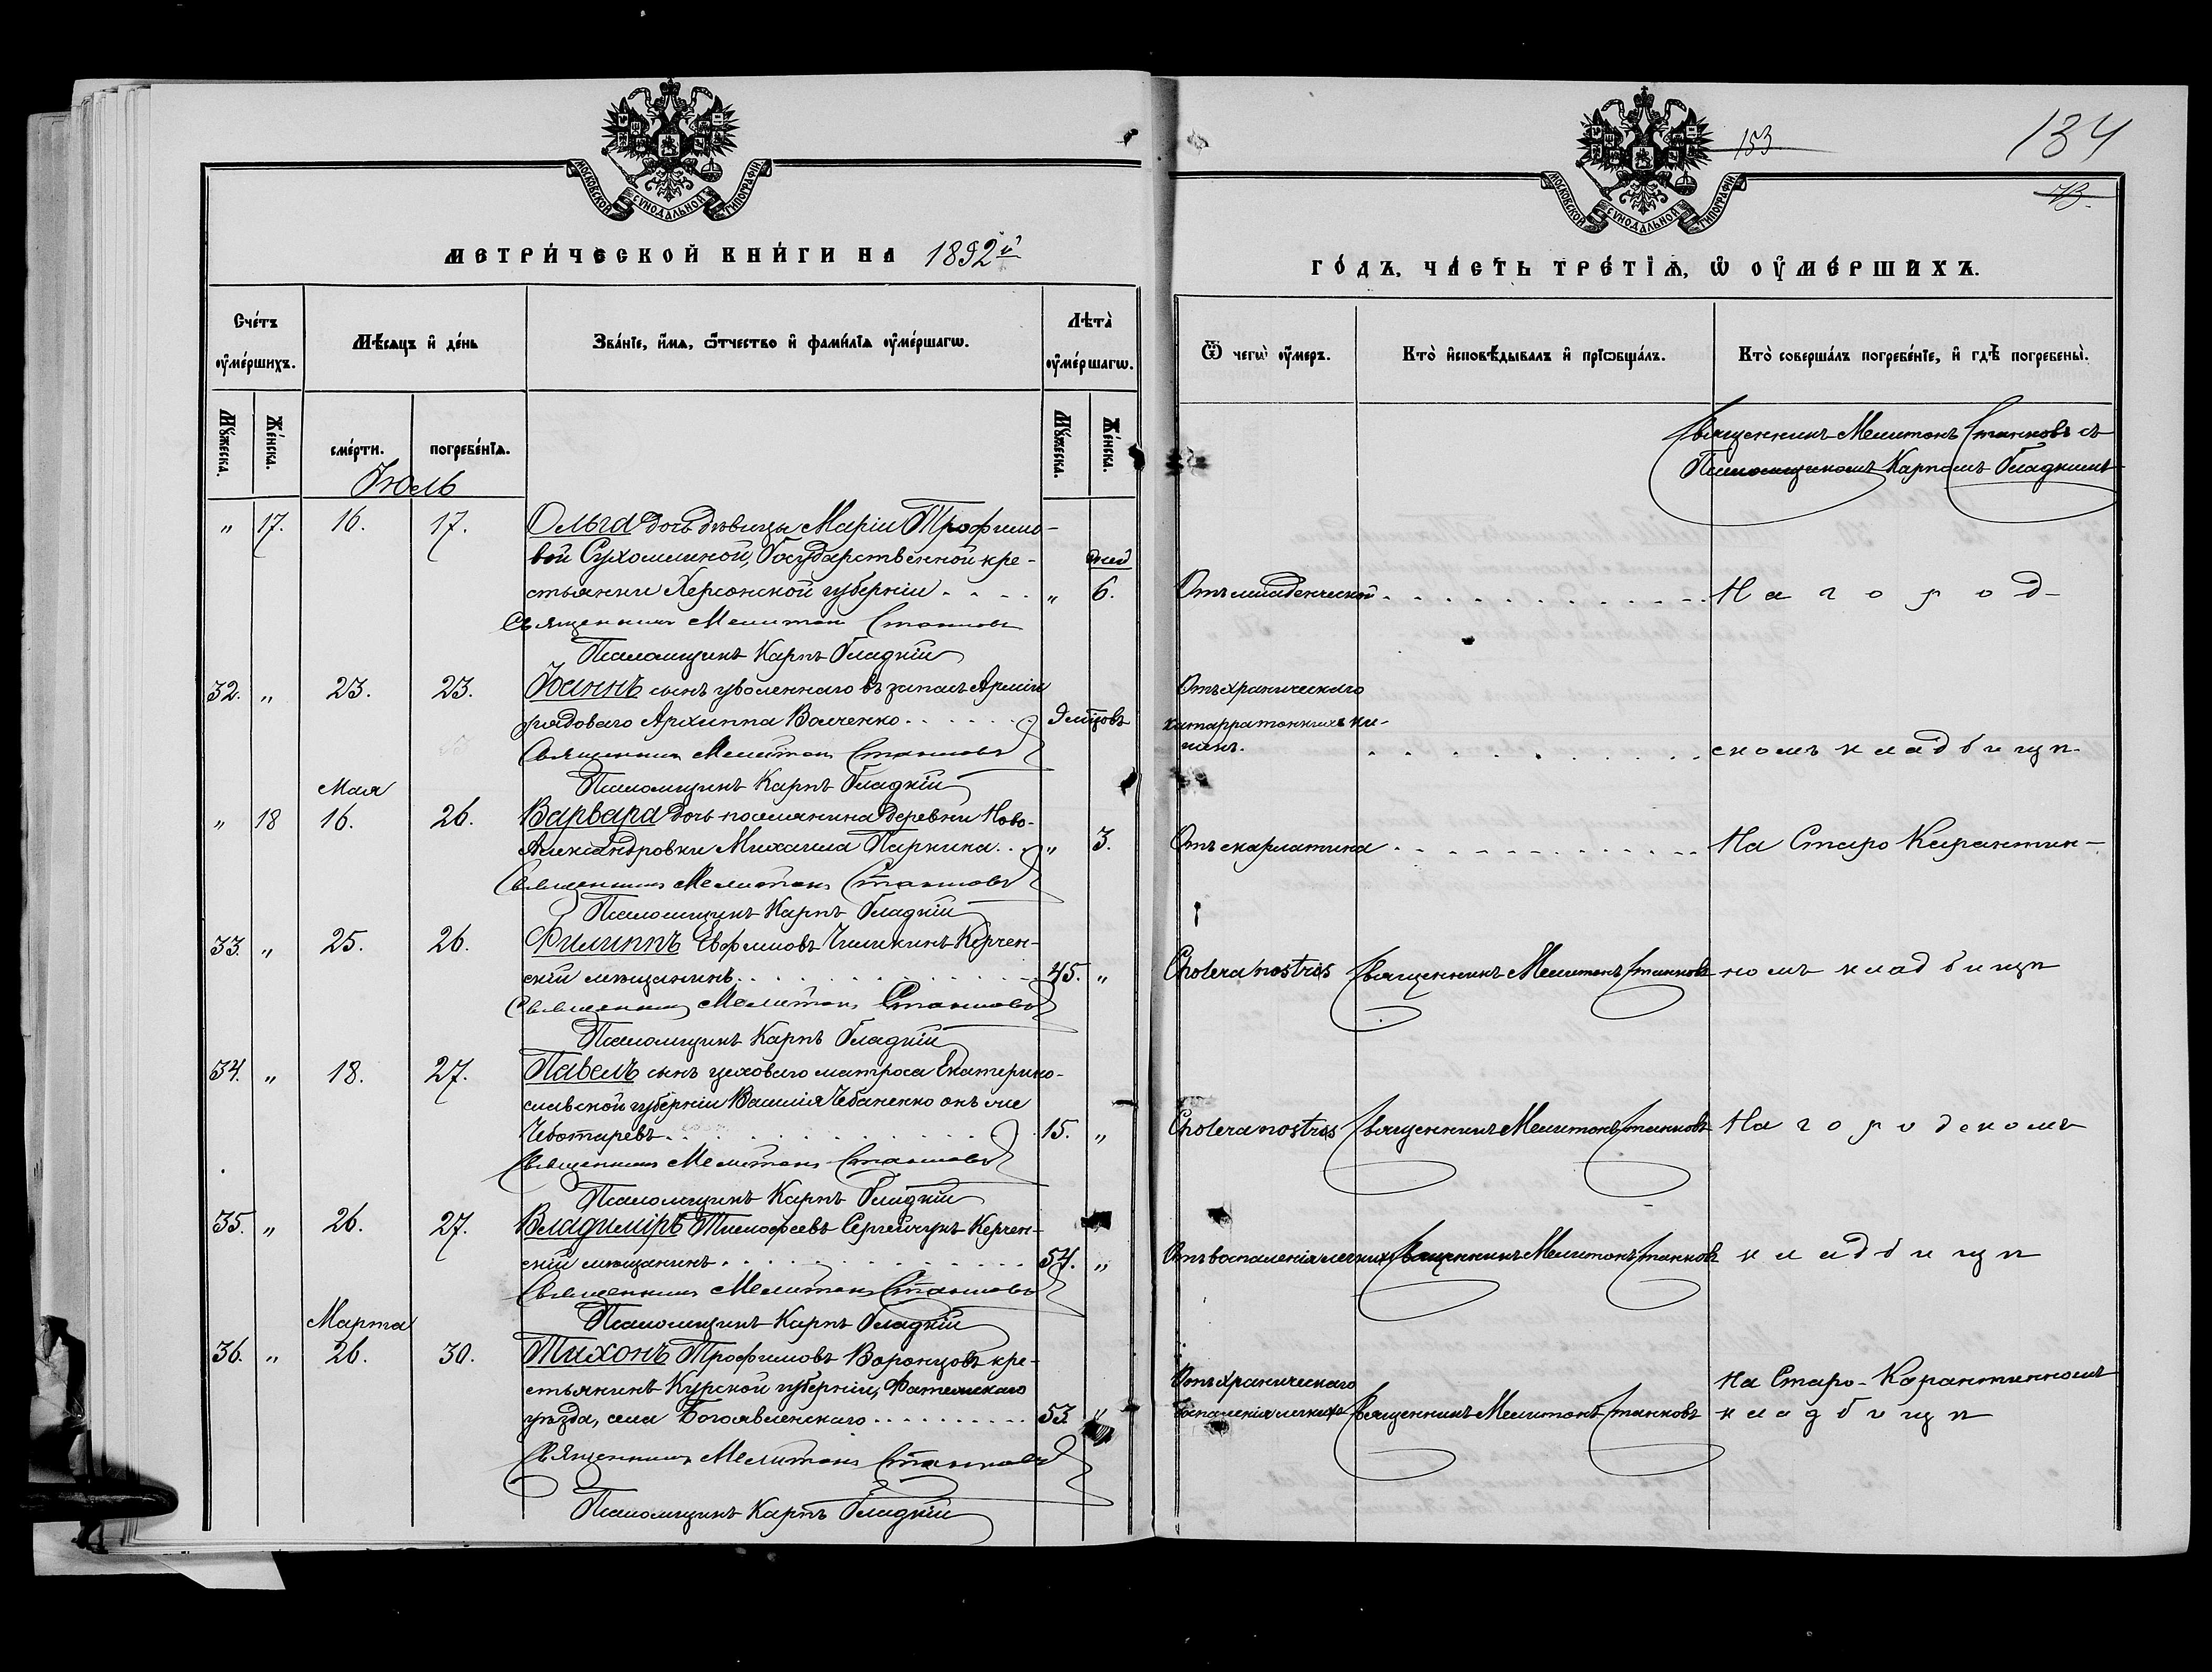 МОСКОВСКОЙ СѴНОДАЛЬНОЙ ТИПОГРАФІИ
МЕТРИ́ЧЕСКОЙ КНИ́ГИ НА 1892й
Сче́тъ ᲂу҆ме́ршихъ.
Мѣ́сяцъ и҆ де́нь
Зва́нїе, и҆́мѧ, ѻ҆́тчество и҆ фами́лїѧ ᲂу҆ме́ршагѡ.
Лѣта̀ ᲂу҆ме́ршагѡ.
Мꙋ́жеска.
Же́нска.
сме́рти.
погребе́нїѧ.
Мꙋ́жеска.
Же́нска.
Іюль
" 17. 16. 17. Ольга дочь дѣвицы Маріи Трофимо-
вой Сухомлиной, Государственной кре- дней
стьянки Херсонской губерніи . . . . " 6.
Священникъ Мелитонъ Станковъ
Псаломщикъ Карпъ Гладкій
32. " 23. 23. Іоаннъ сынъ уволеннаго въ запасъ Арміи
рядоваго Архиппа Волченко . . . . . . 9 мѣсяцовъ
Священникъ Мелитонъ Станковъ
Псаломщикъ Карпъ Гладкій
Мая
" 18 16. 26. Варвара дочь поселянина деревни Ново-
Александровки Михаила Паркина . . " 3.
Священникъ Мелитонъ Станковъ
Псаломщикъ Карпъ Гладкій
33. " 25. 26. Филиппъ Евфимовъ Чиликинъ Керчен-
скій мѣщанинъ . . . . . . . . . 45. "
Священникъ Мелитонъ Станковъ
Псаломщикъ Карпъ Гладкій
34. " 18. 27. Павелъ сынъ цеховаго матроса Екатерино-
славской губерніи Василія Чебаненко онъ же
Чеботаревъ . . . . . . . . . . 15. "
Священникъ Мелитонъ Станковъ
Псаломщикъ Карпъ Гладкій
35. " 26. 27. Владиміръ Тимофеевъ Сергейчукъ Керчен-
скій мѣщанинъ . . . . . . . . . . 54. "
Священникъ Мелитонъ Станковъ
Псаломщикъ Карпъ Гладкій
Марта
36. " 26. 30. Тихонъ Трофимовъ Воронцовъ кре-
стьянинъ Курской губерніи, Фатежскаго
уѣзда, села Богоявленскаго . . . . . . . . . . 53 "
Священникъ Мелитонъ Станковъ
Псаломщикъ Карпъ Гладкій
153
134
МОСКОВСКОЙ СѴНОДАЛЬНОЙ ТИПОГРАФІИ
ГО́ДЪ, ЧА́СТЬ ТРЕ́ТЇѦ, Ѡ҆ ОУ҆МЕ́РШИХЪ.
Ѿ чегѡ̀ ᲂу҆́меръ.
Кто̀ и҆сповѣ́дывалъ и҆ прїѡбща́лъ.
Кто̀ соверша́лъ погребе́нїе, и҆ гдѣ̀ погребены̀.
Священникъ Мелитонъ Станковъ съ
Псаломщикомъ Карпомъ Гладкимъ
Отъ младенческой . . . . . . . . . . . . На город-
Отъ хроническаго
катарра тонкихъ ки-
шекъ. . . . . . . . . . скомъ кладбищѣ
Отъ скарлатина . . . . . . . . . . . . На Старо Карантин-
Cholera nostras Священникъ Мелитонъ Станковъ номъ кладбищѣ
Cholera nostras Священникъ Мелитонъ Станковъ На городскомъ
Отъ воспаленія легкихъ Священникъ Мелитонъ Станковъ кладбищѣ
Отъ хроническаго На Старо-Карантинномъ
воспаленія легкихъ Священникъ Мелитонъ Станковъ кладбищѣ